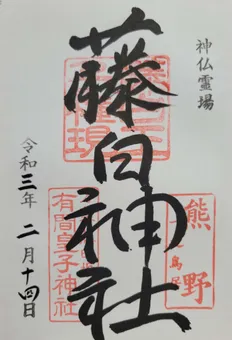 神仏霊場
藤白神社
令和三年 二月十四日
有間皇子神社
熊野